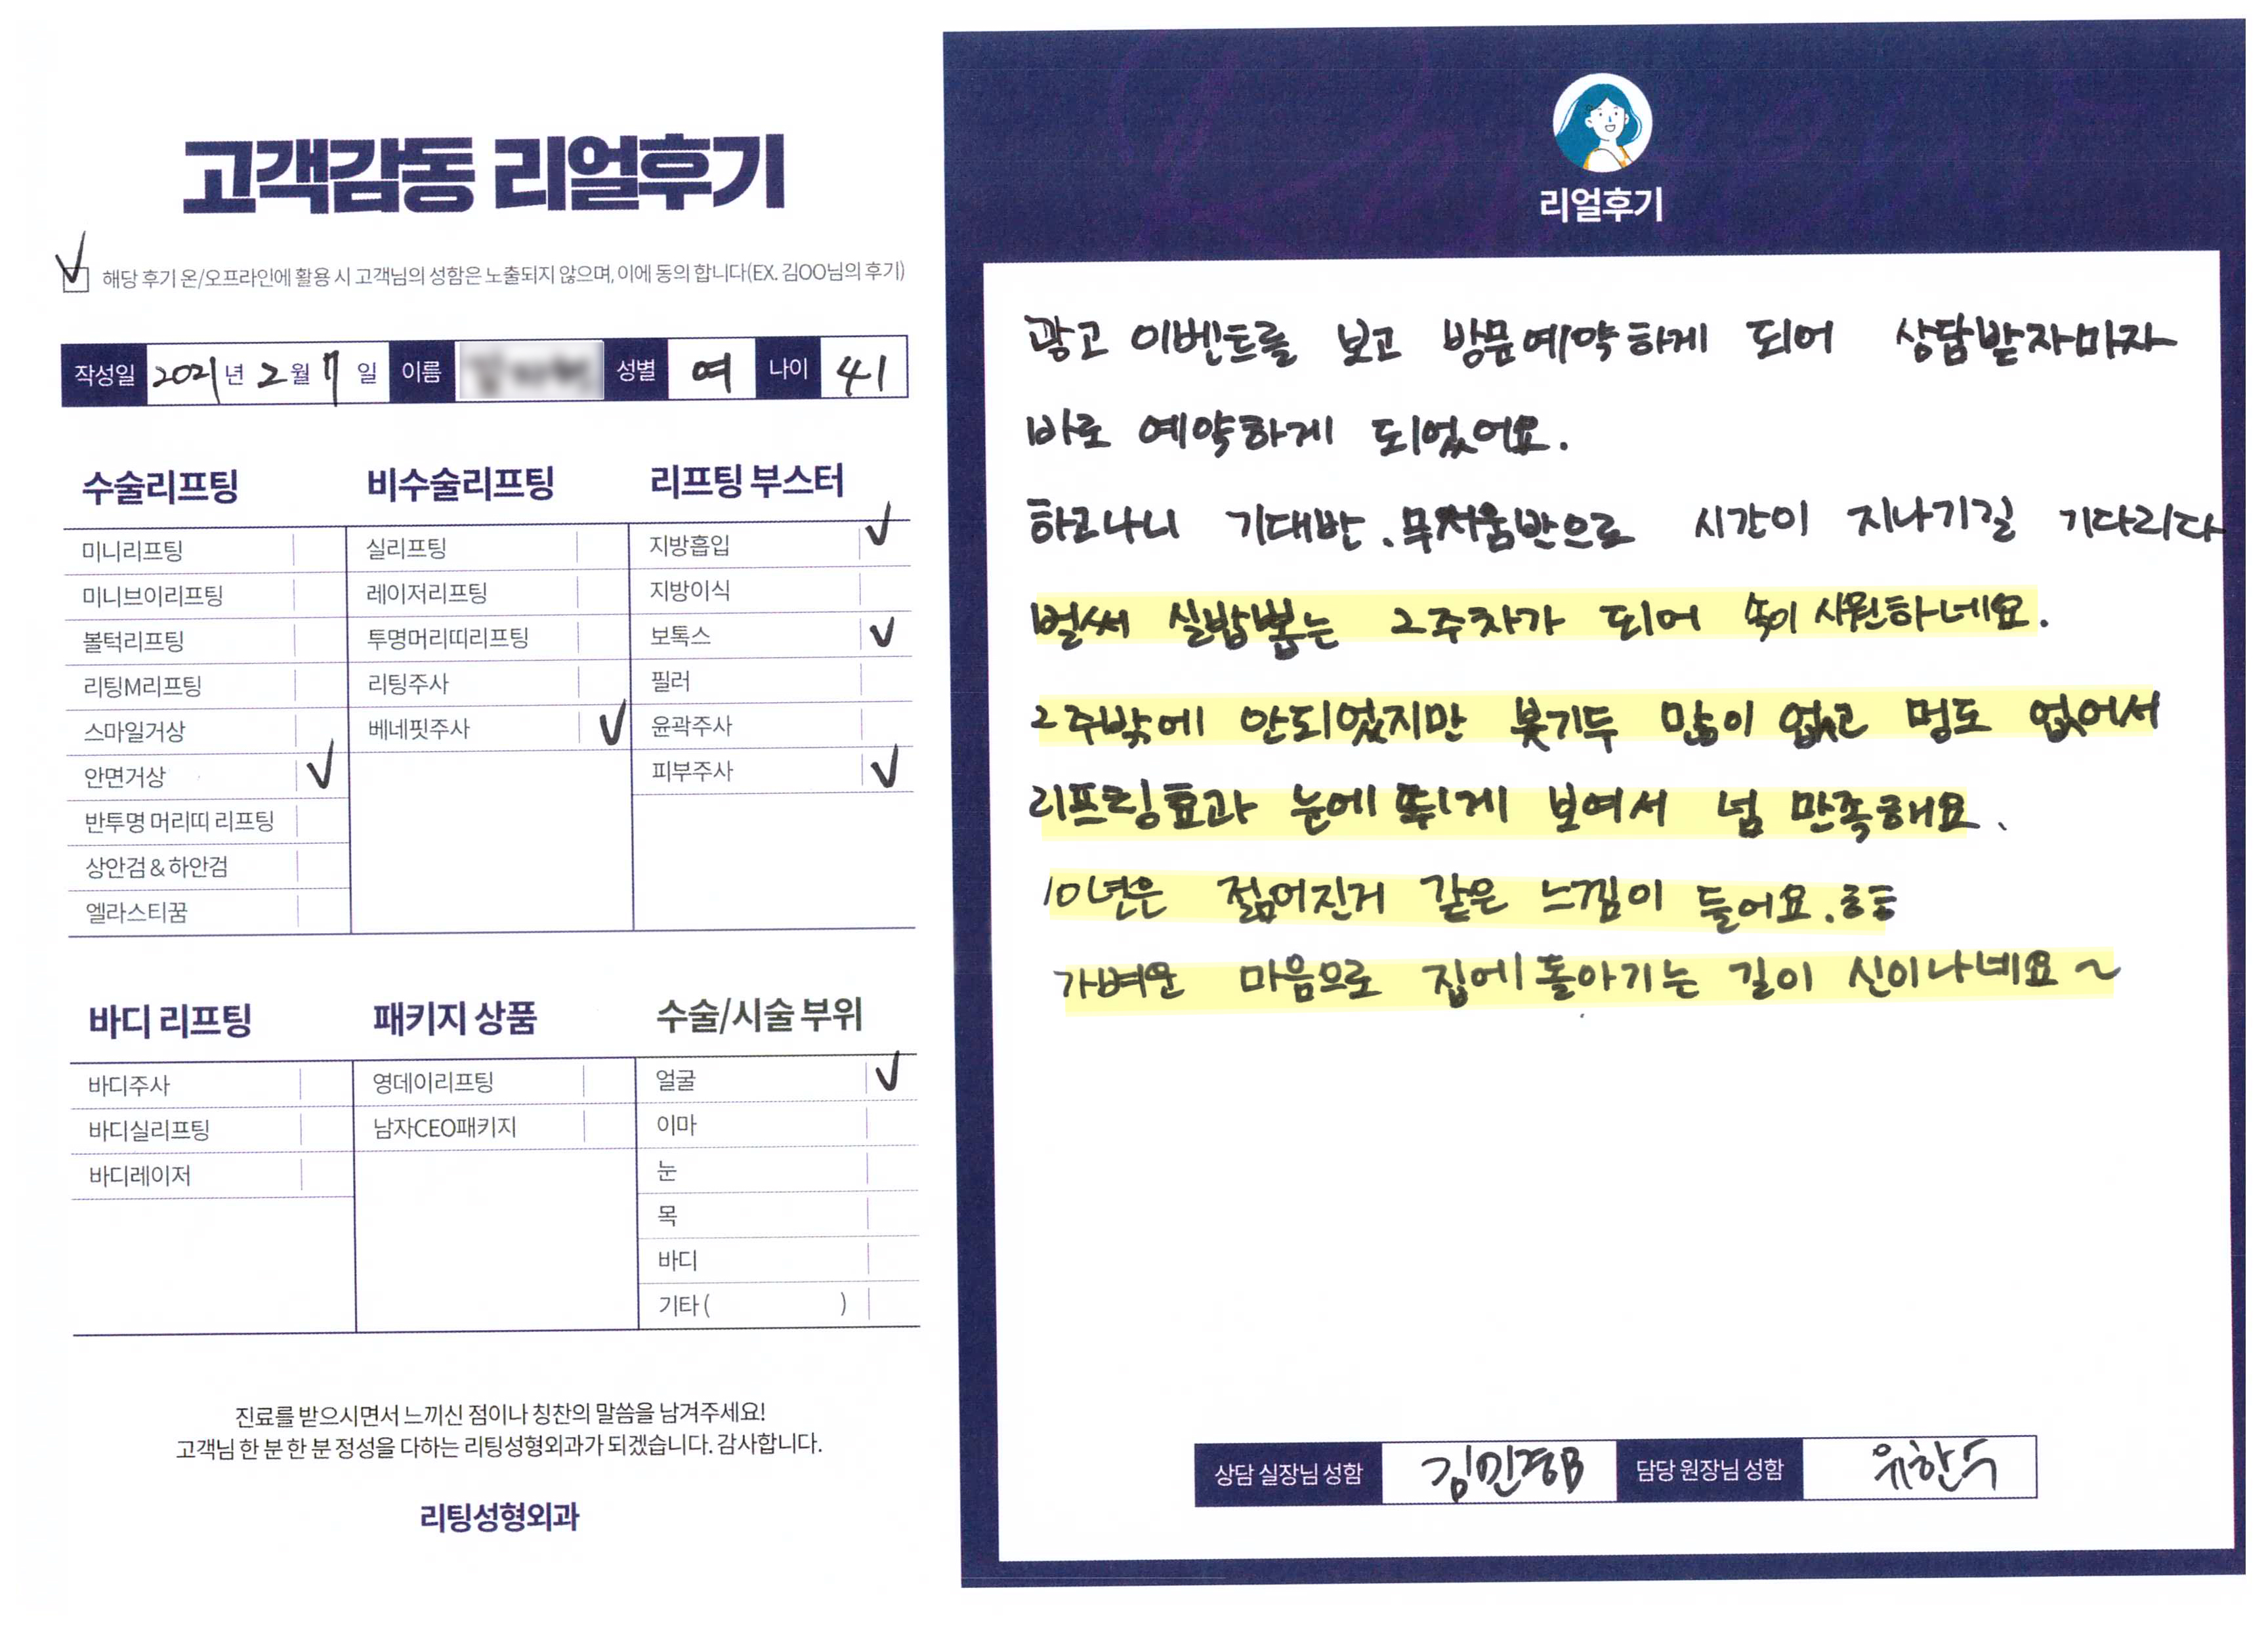 고객감동 리얼후기
해당 후기 온/오프라인에 활용 시 고객님의 성함은 노출되지 않으며, 이에 동의 합니다(EX. 김OO님의 후기)
작성일 2021년 2월 7일 이름 성별 여 나이 41
수술리프팅
미니리프팅
미니브이리프팅
볼턱리프팅
리팅M리프팅
스마일거상
안면거상
반투명 머리띠 리프팅
상안검 & 하안검
엘라스티꿈
비수술리프팅
실리프팅
레이저리프팅
투명머리띠리프팅
리팅주사
베네핏주사
리프팅 부스터
지방흡입
지방이식
보톡스
필러
윤곽주사
피부주사
바디 리프팅
바디주사
바디실리프팅
바디레이저
패키지 상품
영데이리프팅
남자CEO패키지
수술/시술 부위
얼굴
이마
눈
목
바디
기타 ( )
진료를 받으시면서 느끼신 점이나 칭찬의 말씀을 남겨주세요!
고객님 한 분 한 분 정성을 다하는 리팅성형외과가 되겠습니다. 감사합니다.
리팅성형외과
리얼후기
광고 이벤트를 보고 방문예약하게 되어 상담받자마자
바로 예약하게 되었어요.
하고나니 기대반.무서움반으로 시간이 지나기길 기다리다
벌써 실밥뽑는 2주차가 되어 속이 시원하네요.
2주밖에 안되었지만 붓기두 많이 없고 멍도 없어서
리프팅효과 눈에 띄게 보여서 넘 만족해요.
10년은 젊어진거 같은 느낌이 들어요.ㅎㅎ
가벼운 마음으로 집에 돌아가는 길이 신이나네요~
상담 실장님 성함 김민경B 담당 원장님 성함 유한수